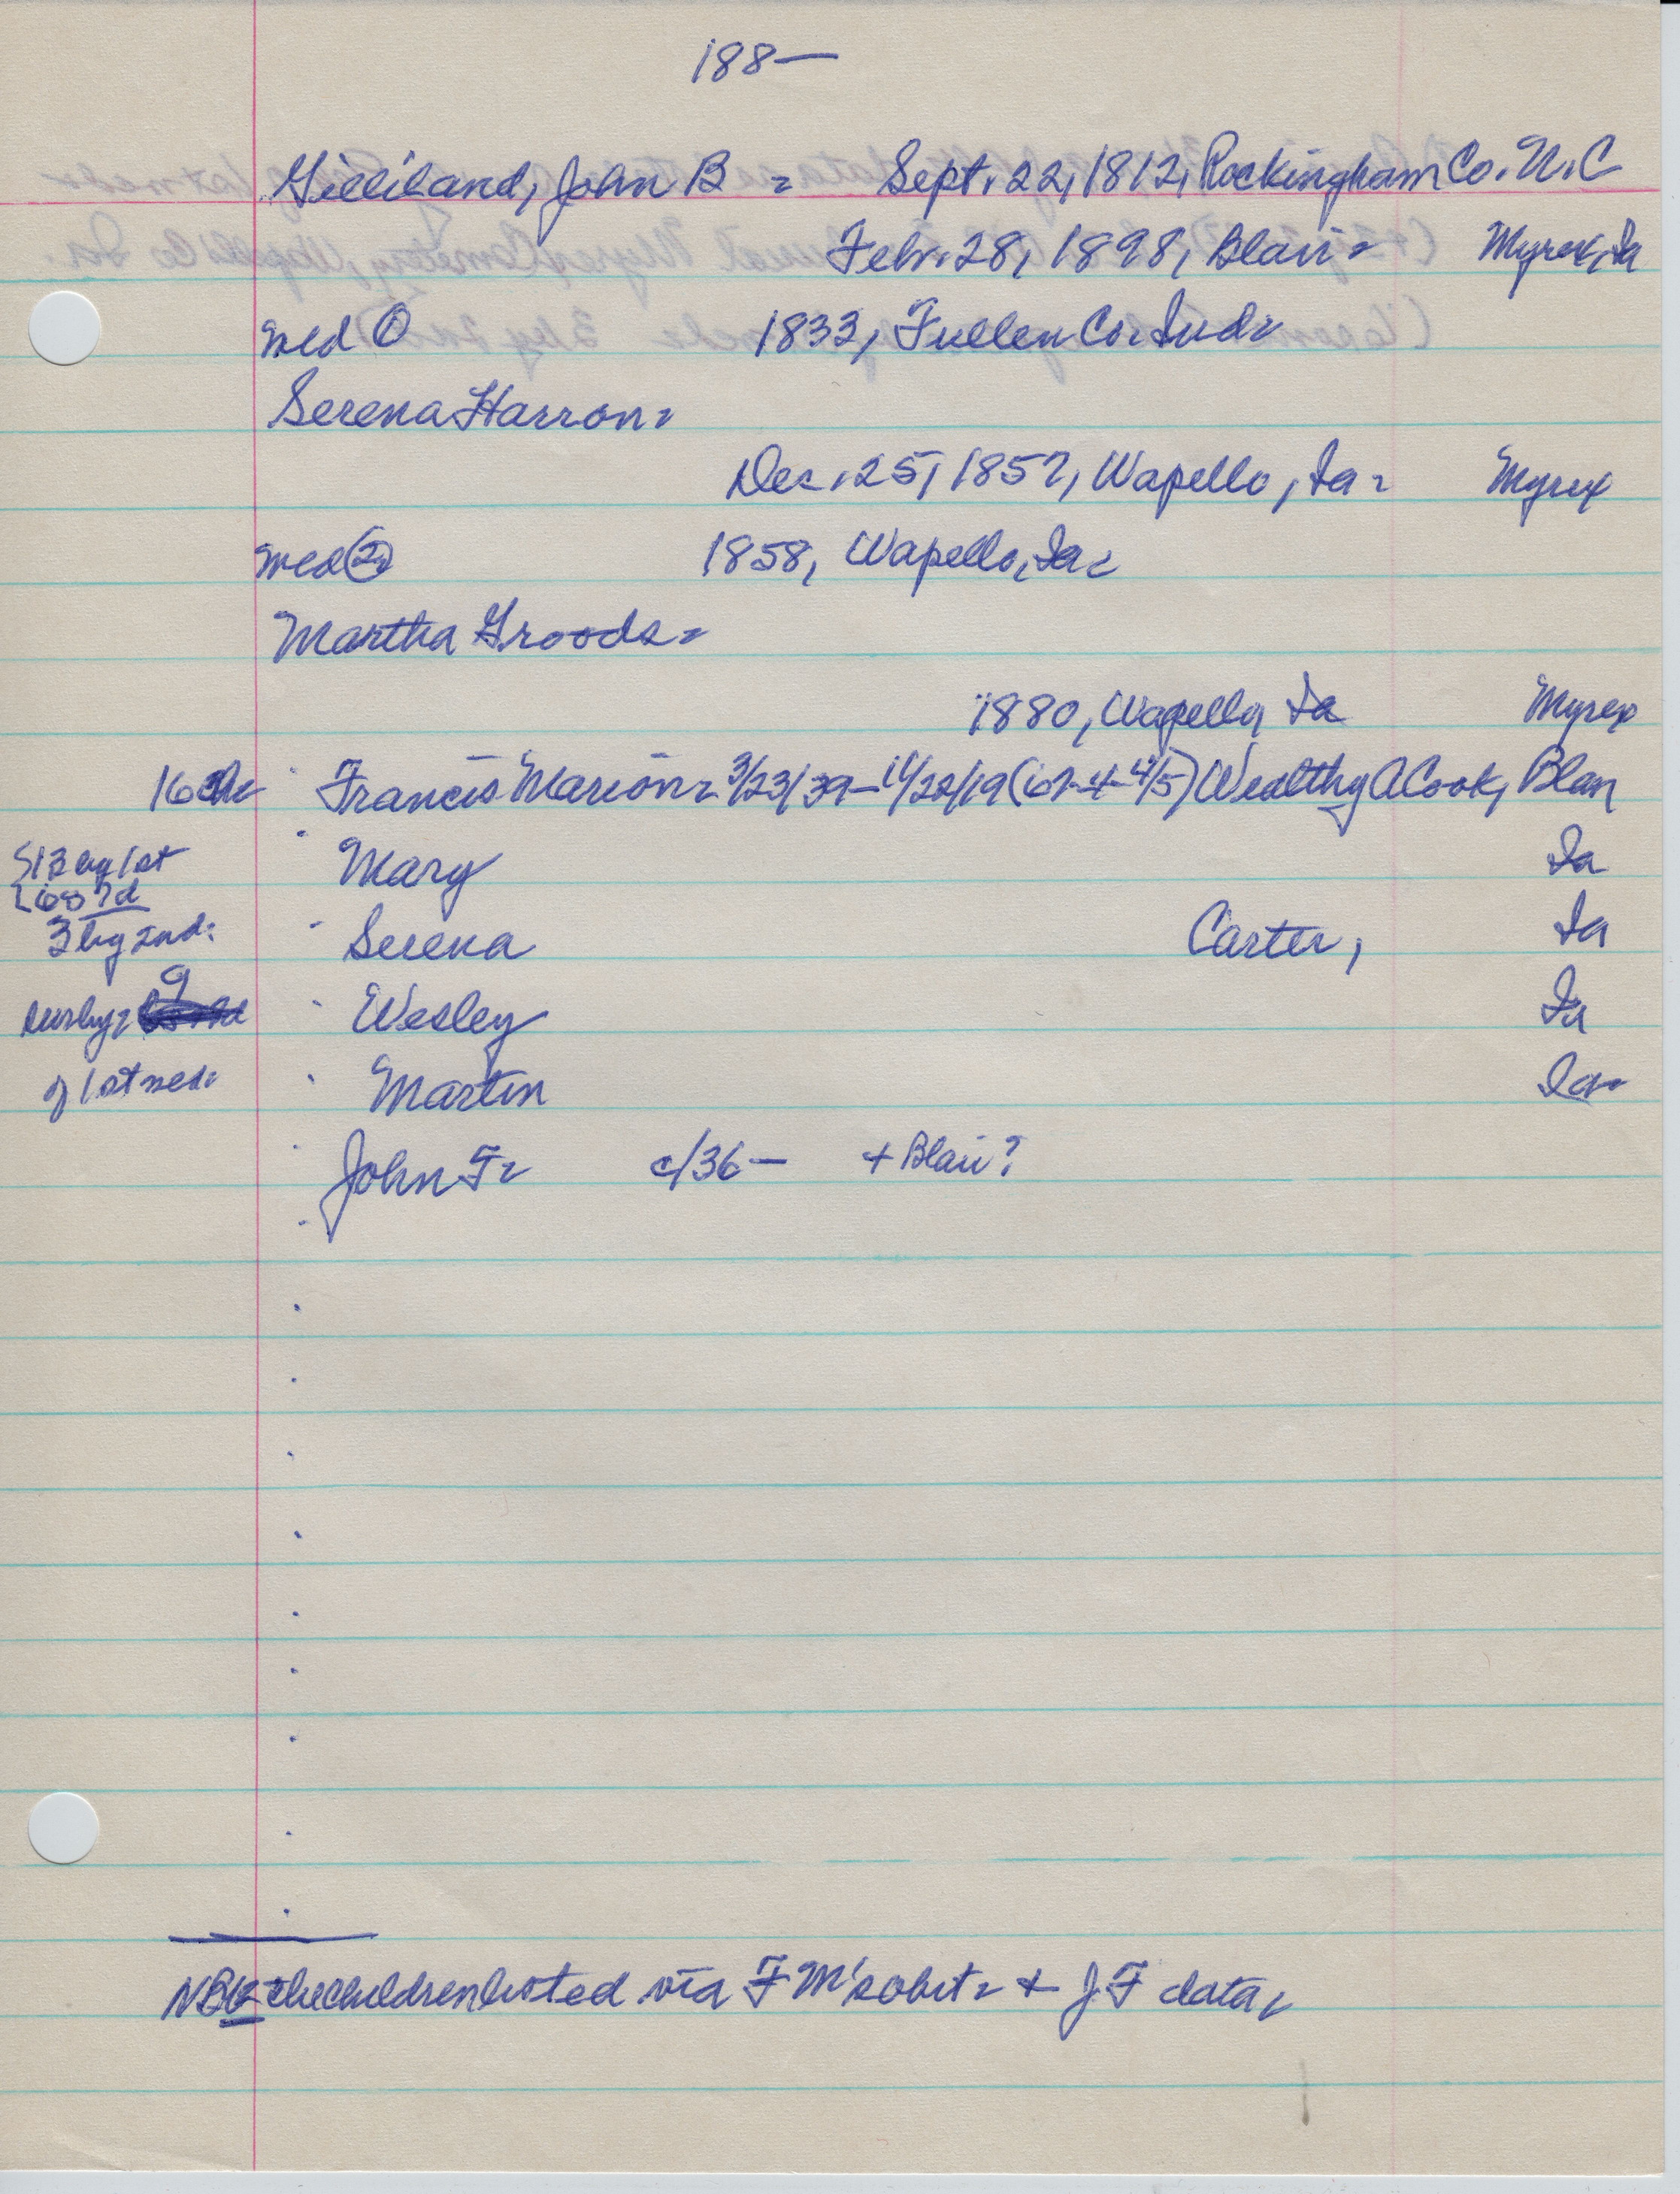 188—
Gilliland, John B = Sept. 22, 1812, Rockingham Co. N.C
Febr. 28, 1898, Blair = Myrex, Ia
Wed ① 1833, Fullen Co. Ind.
Serena Harron =
Dec. 25, 1857, Wapello, Ia = Myrex
Wed ② 1858, Wapello, Ia.
Martha Groods =
1880, Wapello, Ia Myrex
16 Ch. Francis Marion = 3/23/39 — 11/28/19 Wealthy A Cook, Blair
13 by 1st Mary Ia
3 by 2nd. Serena Carter, Ia
9 Wesley Ia
of 1st wed. Martin Ia
John F. c/36 — + Blair?
NB the children listed via F M's obit. + J F data.